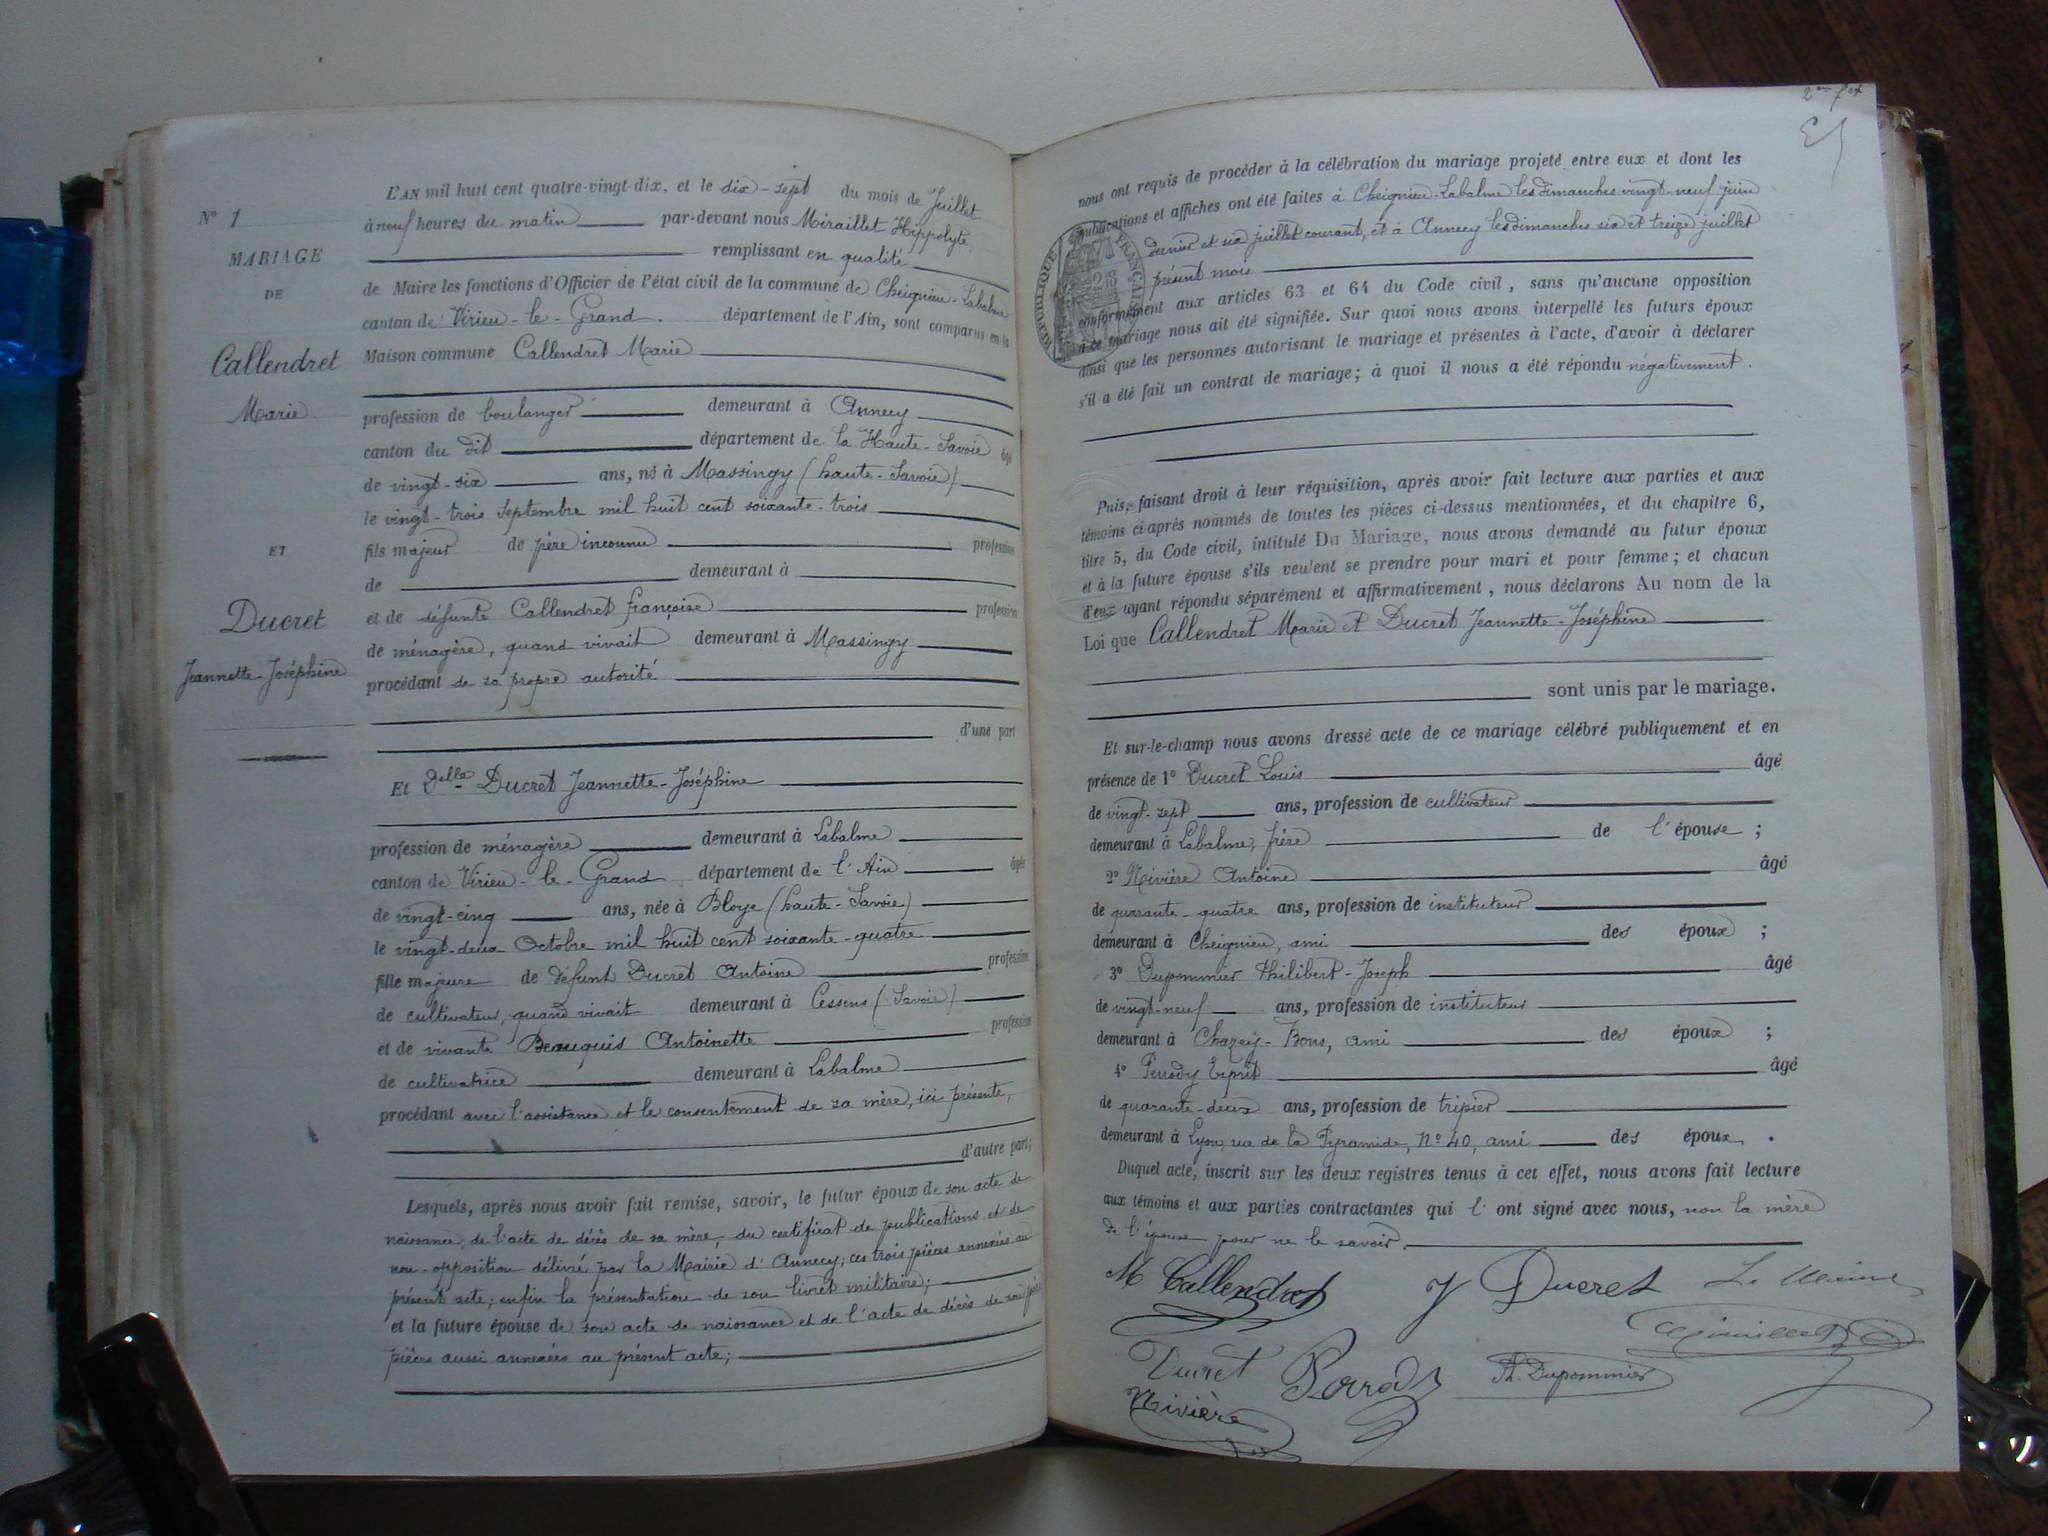 L'AN mil huit cent quatre-vingt-dix, et le dix-sept du mois de Juillet
à neuf heures du matin par-devant nous Miraillet Hippolyte
remplissant en qualité
de Maire les fonctions d'Officier de l'état civil de la commune de Cheignieu-Labalme
canton de Virieu-le-Grand. département de l'Ain, sont comparus en la
Maison commune Callendret Marie
profession de boulanger demeurant à Annecy
canton du dit département de la Haute-Savoie âgé
de vingt-six ans, né à Massingy (haute-Savoie)
le vingt-trois Septembre mil huit cent soixante-trois
fils majeur de père inconnu profession
de demeurant à
et de défunte Callendret françoise profession
de ménagère, quand vivait demeurant à Massingy
procédant de sa propre autorité
d'une part
Et Delle Ducret Jeannette-Joséphine
profession de ménagère demeurant à Labalme
canton de Virieu-le-Grand département de l'Ain âgée
de vingt-cinq ans, née à Bloye (haute-Savoie)
le vingt-deux Octobre mil huit cent soixante-quatre
fille majeure de défunt Ducret Antoine profession
de cultivateur, quand vivait demeurant à Cessens (Savoie)
et de vivante Beauquis Antoinette profession
de cultivatrice demeurant à Labalme
procédant avec l'assistance et le consentement de sa mère, ici présente,
d'autre part;
Lesquels, après nous avoir fait remise, savoir, le futur époux de son acte de
naissance, de l'acte de décès de sa mère, du certificat de publications et de
non-opposition délivré par la Mairie d'Annecy; ces trois pièces annexées au
présent acte; enfin la présentation de son livret militaire;
et la future épouse de son acte de naissance et de l'acte de décès de son père
pièces aussi annexées au présent acte;
N° 1
MARIAGE
DE
Callendret
Marie
ET
Ducret
Jeannette-Joséphine
nous ont requis de procéder à la célébration du mariage projeté entre eux et dont les
publications et affiches ont été faites à Cheignieu-Labalme les dimanches vingt-neuf juin
dernier et six juillet courant, et à Annecy les dimanches six et treize juillet
présent mois
conformément aux articles 63 et 64 du Code civil, sans qu'aucune opposition
à ce mariage nous ait été signifiée. Sur quoi nous avons interpellé les futurs époux
ainsi que les personnes autorisant le mariage et présentes à l'acte, d'avoir à déclarer
s'il a été fait un contrat de mariage; à quoi il nous a été répondu négativement.
RÉPUBLIQUE FRANÇAISE
Puis, faisant droit à leur réquisition, après avoir fait lecture aux parties et aux
témoins ci-après nommés de toutes les pièces ci-dessus mentionnées, et du chapitre 6,
titre 5, du Code civil, intitulé Du Mariage, nous avons demandé au futur époux
et à la future épouse s'ils veulent se prendre pour mari et pour femme; et chacun
d'eux ayant répondu séparément et affirmativement, nous déclarons Au nom de la
Loi que Callendret Marie et Ducret Jeannette-Joséphine
sont unis par le mariage.
Et sur-le-champ nous avons dressé acte de ce mariage célébré publiquement et en
présence de 1° Ducret Louis âgé
de vingt-sept ans, profession de cultivateur
demeurant à Labalme, frère de l'épouse;
2° Nivière Antoine âgé
de quarante-quatre ans, profession de instituteur
demeurant à Cheignieu, ami des époux;
3° Dupommier Philibert-Joseph âgé
de vingt-neuf ans, profession de instituteur
demeurant à Chazey-Bons, ami des époux;
4° Perrody Esprit âgé
de quarante-deux ans, profession de tripier
demeurant à Lyon, rue de la Pyramide, N° 40, ami des époux.
Duquel acte, inscrit sur les deux registres tenus à cet effet, nous avons fait lecture
aux témoins et aux parties contractantes qui l'ont signé avec nous, non la mère
de l'épouse pour ne le savoir.
M Callendret J Ducret Le Maire
Miraillet
Ducret Perrody Ph. Dupommier
Nivière